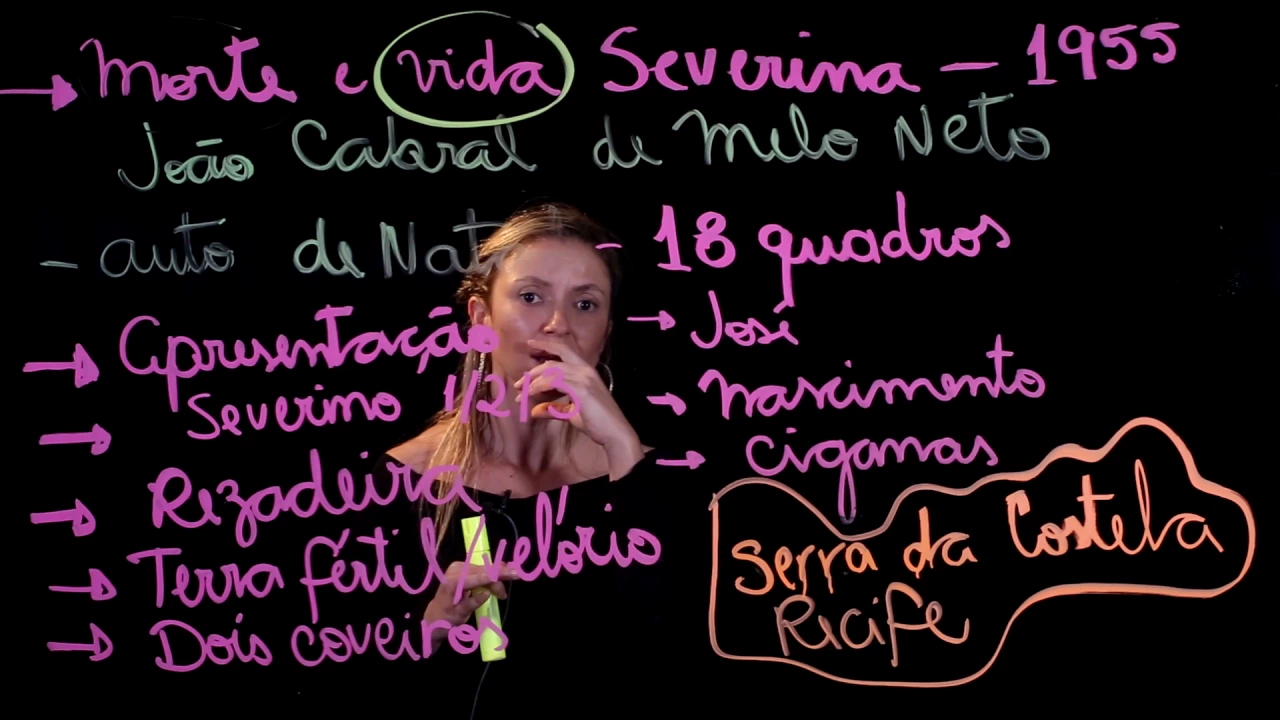 → Morte e vida Severina - 1955
João Cabral de Melo Neto
- auto de Nat
→ Apresentação
→ Severino 1/2/3
→ Rezadeira
→ Terra fértil/velório
→ Dois coveiros
- 18 quadros
→ José
→ nascimento
→ ciganas
Serra da Costela
Recife